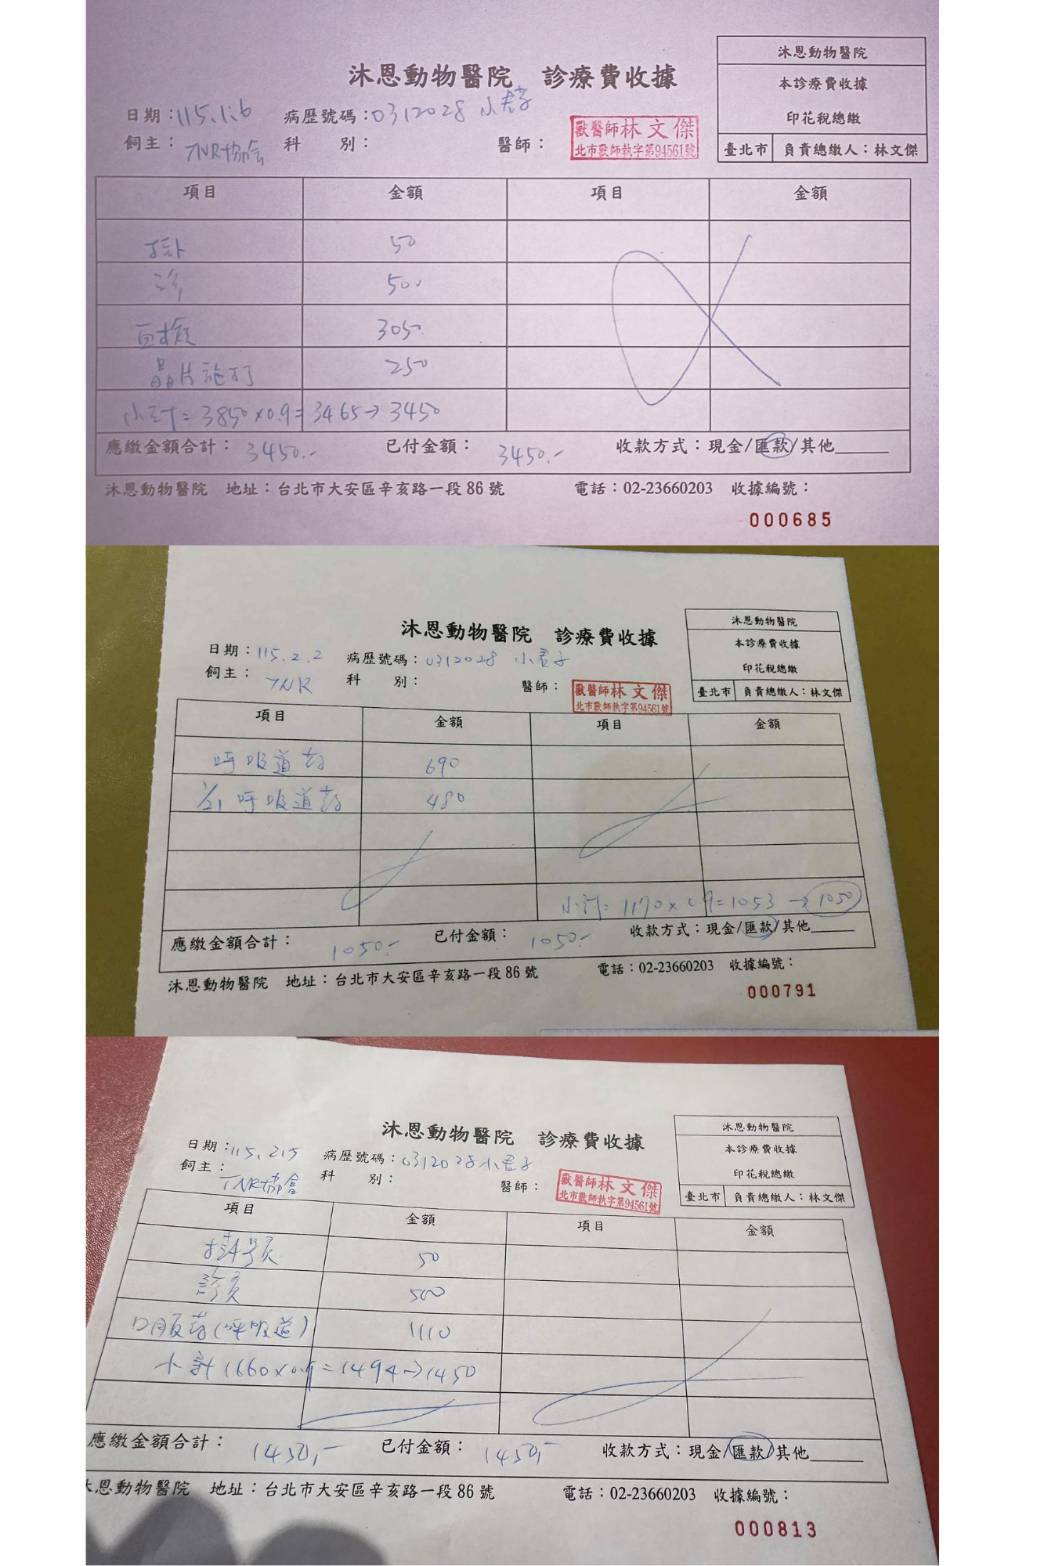 沐恩動物醫院 診療費收據
沐恩動物醫院
本診療費收據
印花稅總繳
臺北市 負責總繳人：林文傑
日期：115.1.6 病歷號碼：0312028 小君子
飼主：TNR協會 科 別： 醫師：
獸醫師林文傑
北市獸師執字第94561號
項目 金額 項目 金額
掛 50
診 500
血檢 3050
晶片施打 250
小計=3850×0.9=3465→3450
應繳金額合計：3450.- 已付金額：3450.- 收款方式：現金/匯款/其他
沐恩動物醫院 地址：台北市大安區辛亥路一段86號 電話：02-23660203 收據編號：
000685
沐恩動物醫院 診療費收據
沐恩動物醫院
本診療費收據
印花稅總繳
臺北市 負責總繳人：林文傑
日期：115.2.2 病歷號碼：0312028 小君子
飼主：TNR 科 別： 醫師：
獸醫師林文傑
北市獸師執字第94561號
項目 金額 項目 金額
呼吸道藥 690
呼吸道藥 480
小計=1170×0.9=1053→1050
應繳金額合計：1050.- 已付金額：1050.- 收款方式：現金/匯款/其他
沐恩動物醫院 地址：台北市大安區辛亥路一段86號 電話：02-23660203 收據編號：
000791
沐恩動物醫院 診療費收據
沐恩動物醫院
本診療費收據
印花稅總繳
臺北市 負責總繳人：林文傑
日期：115.2.5 病歷號碼：0312028 小君子
飼主：TNR協會 科 別： 醫師：
獸醫師林文傑
北市獸師執字第94561號
項目 金額 項目 金額
掛號 50
診 500
口服藥(呼吸道) 1110
小計1660×0.9=1494→1450
應繳金額合計：1450,- 已付金額：1450,- 收款方式：現金/匯款/其他
沐恩動物醫院 地址：台北市大安區辛亥路一段86號 電話：02-23660203 收據編號：
000813